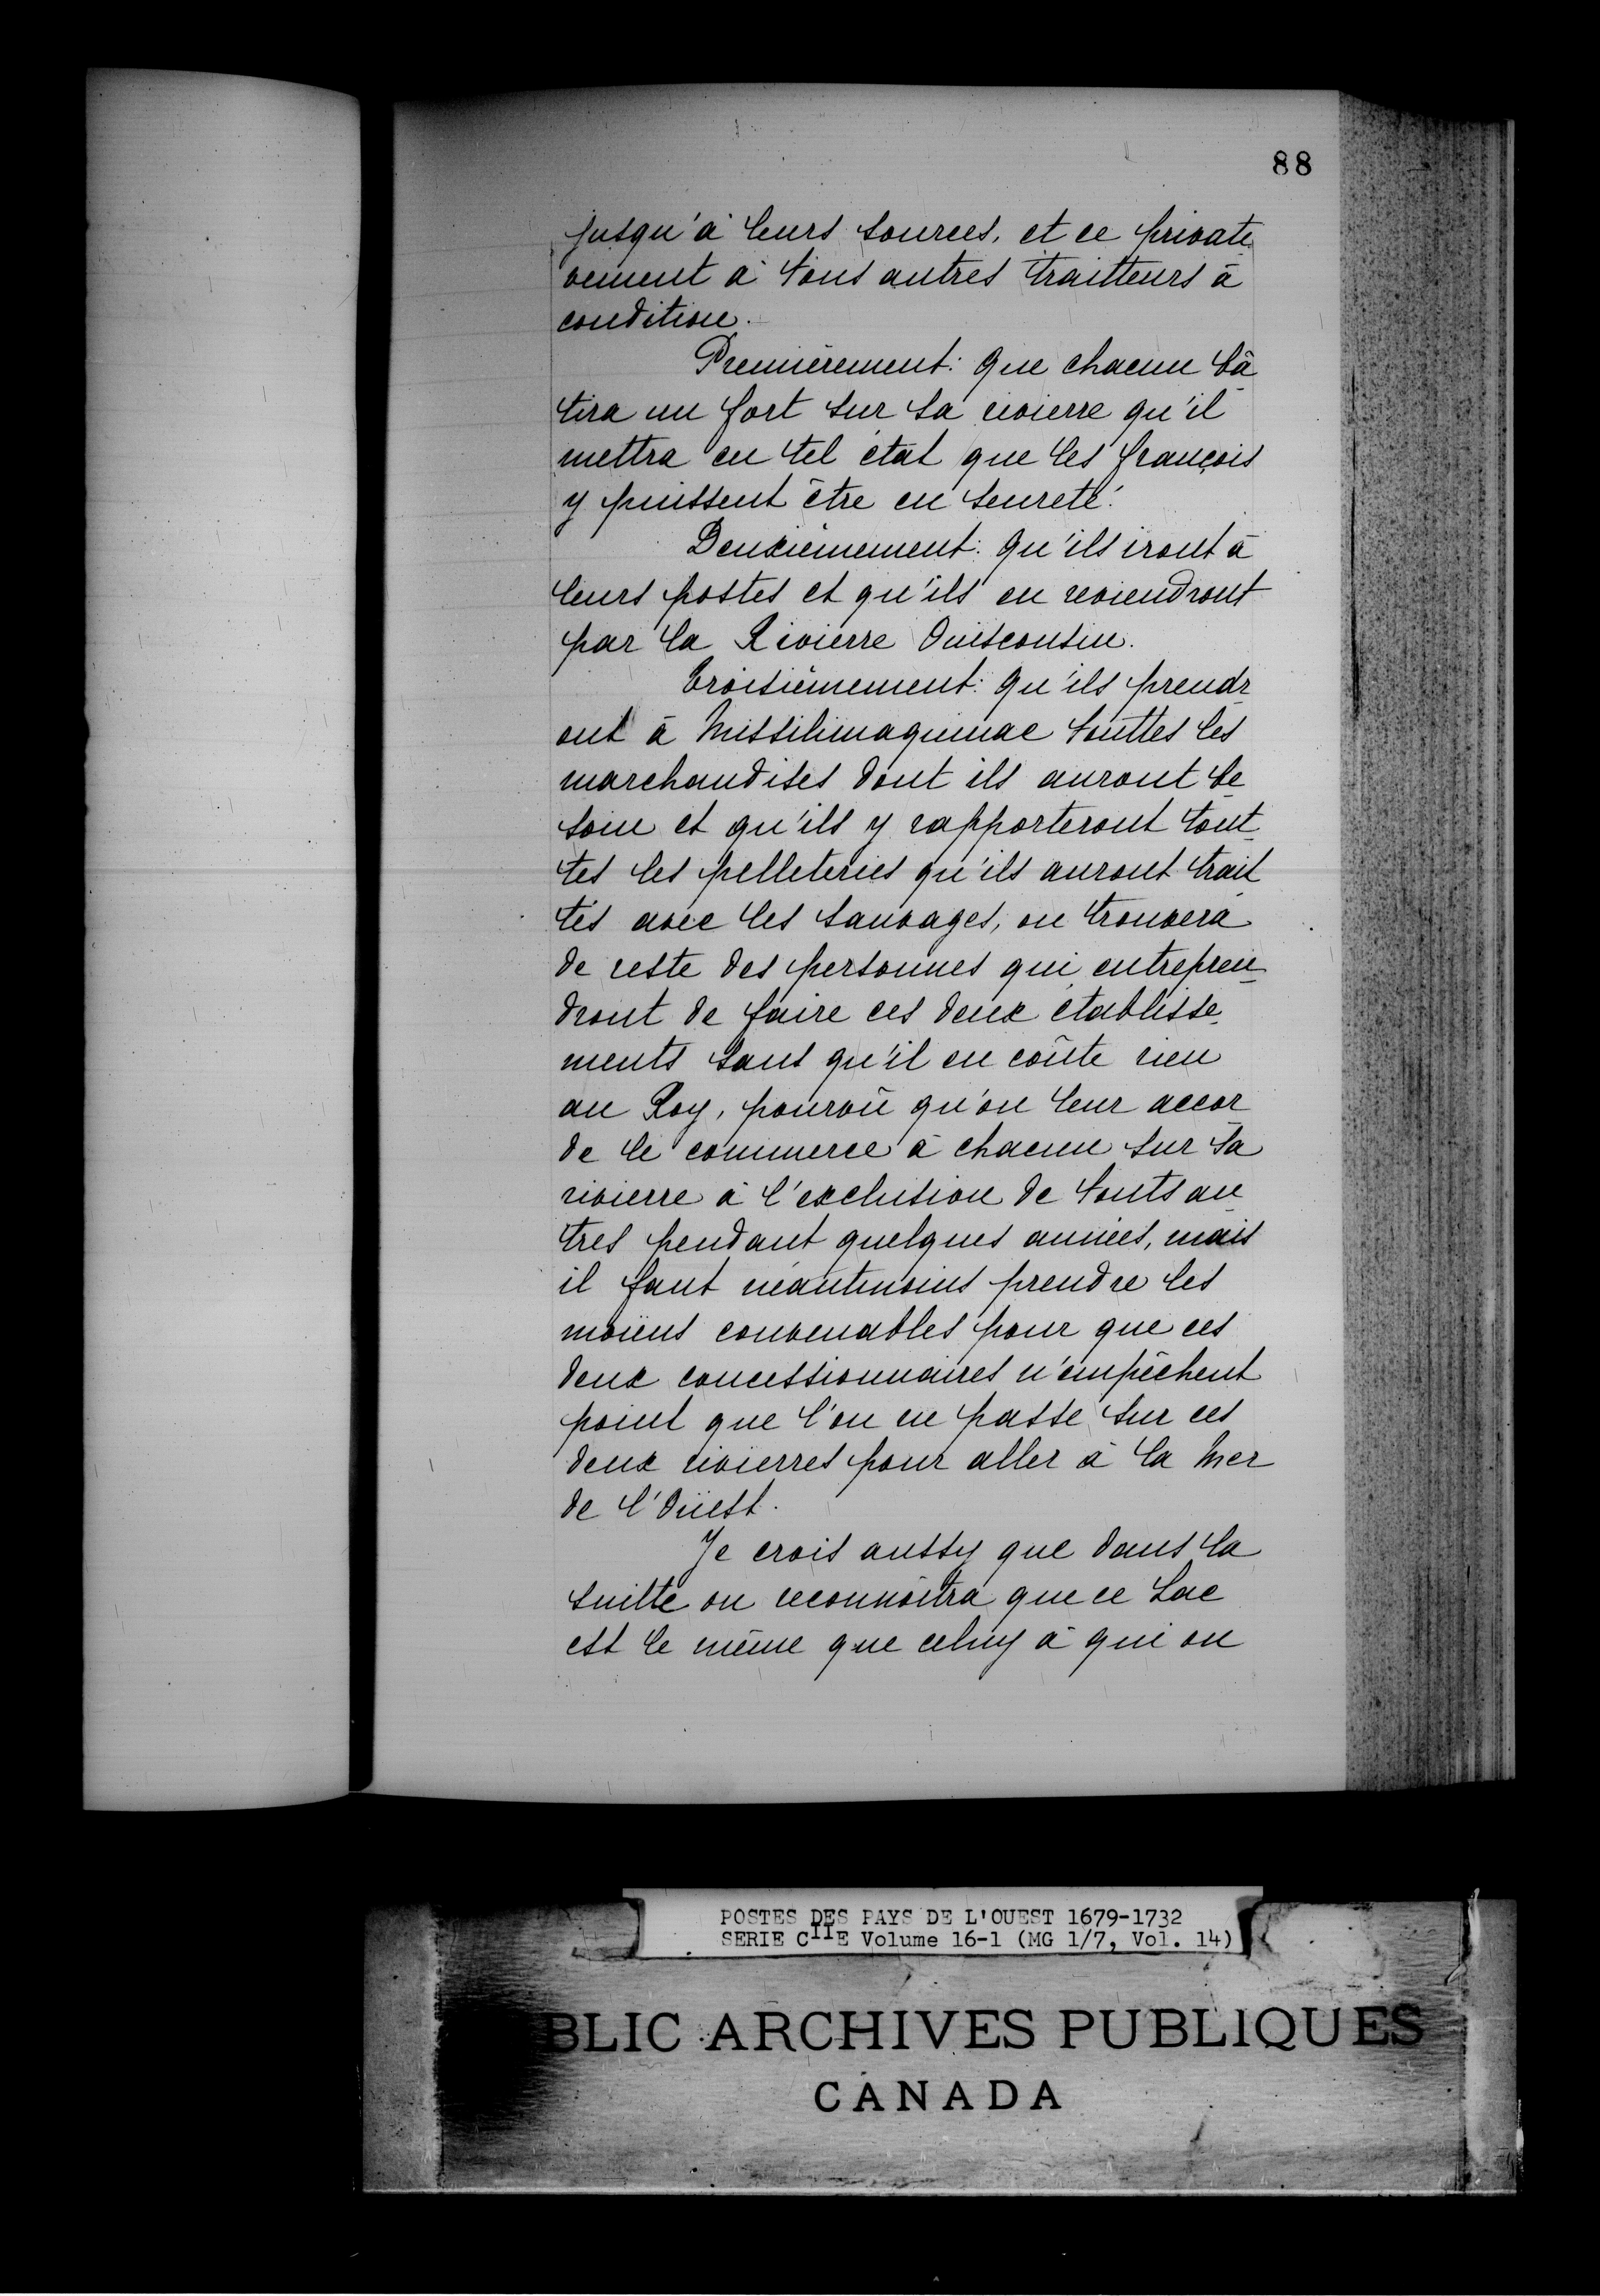 88
jusqu'à leurs sources, et ce private
vement à tous autres traitteurs à
condition.
Premièrement: Que chacun bâ
tira un fort sur sa rivierre qu'il
mettra en tel état que les françois
y puissent être en seureté.
Deuxièmement: Qu'ils iront à
leurs postes et qu'ils en reviendront
par la Rivierre Ouisconsin.
Troisièmement: Qu'ils prendr
ont à Missilimaquinac touttes les
marchandises dont ils auront be
soin et qu'ils y rapporteront tout
tes les pelleteries qu'ils auront trait
tés avec les sauvages, on trouvera
de reste des personnes qui entrepren
dront de faire ces deux établisse
ments sans qu'il en coûte rien
au Roy, pourvû qu'on leur accor
de le commerce à chacun sur sa
rivierre à l'exclusion de touts au
tres pendant quelques années, mais
il faut néantmoins prendre les
moïens convenables pour que ces
deux concessionnaires n'empêchent
point que l'on ne passe sur ces
deux rivierres pour aller à la Mer
de l'Oüest.
Je crois aussy que dans la
suitte on reconnoitra que ce Lac
est le même que celuy à qui on
POSTES DES PAYS DE L'OUEST 1679-1732
SERIE CIIE Volume 16-1 (MG 1/7, Vol. 14)
BLIC ARCHIVES PUBLIQUES
CANADA